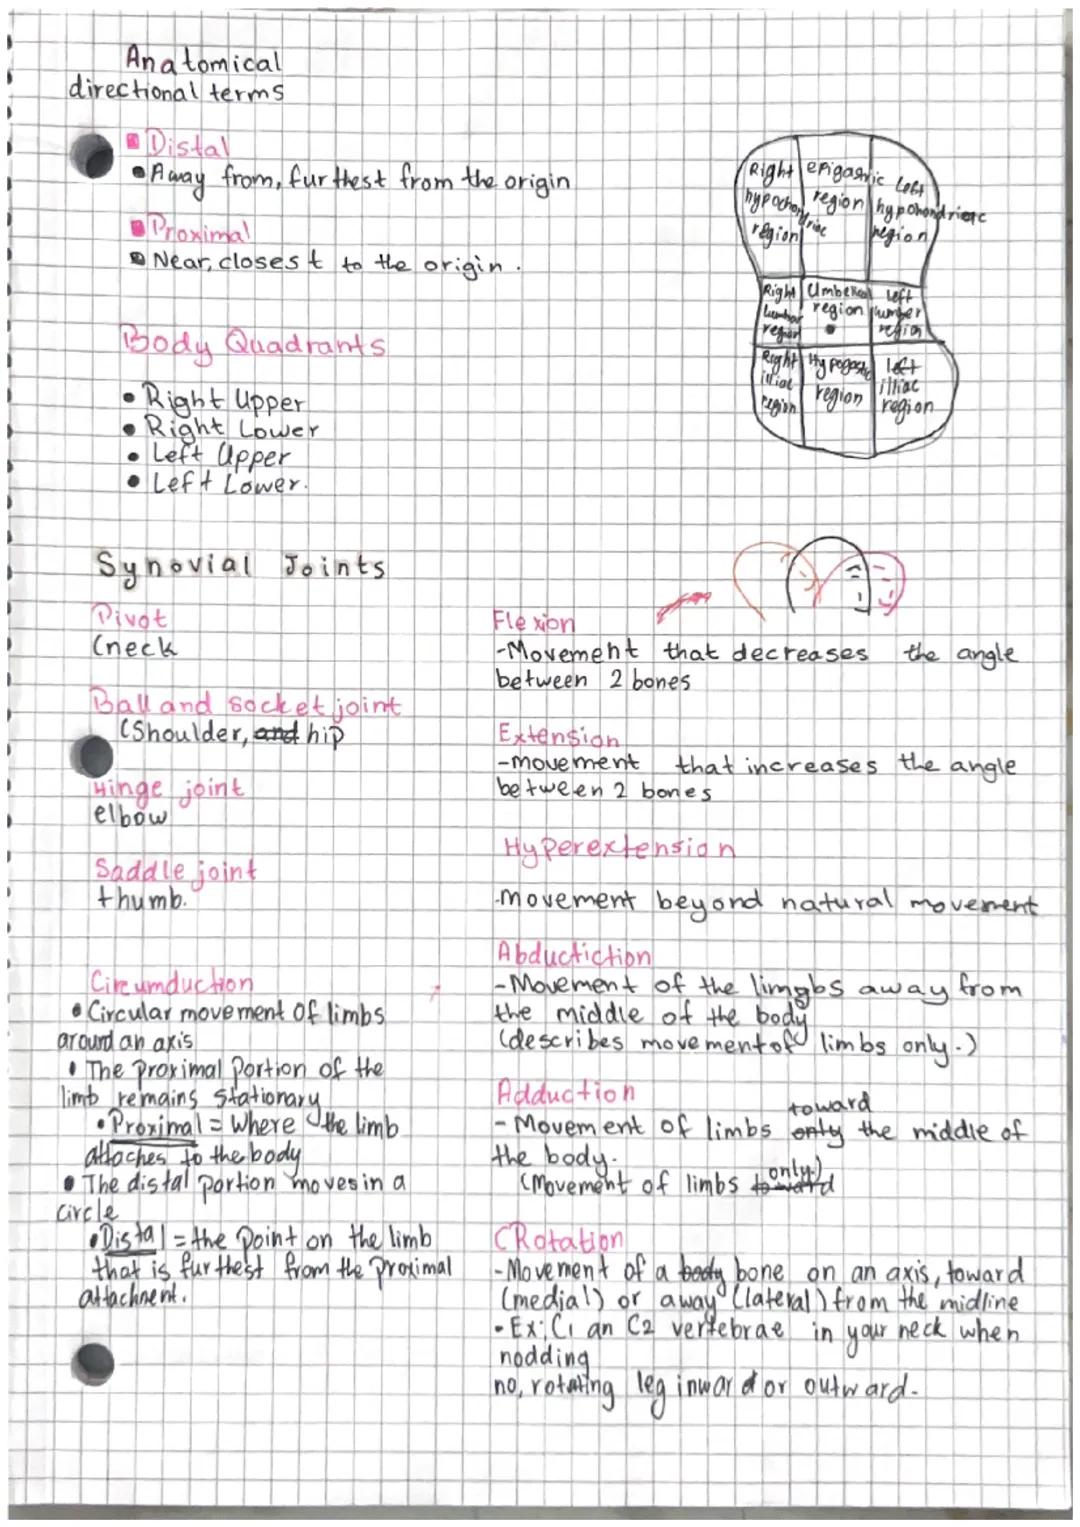 Anatomical
directional terms
Distal
• Away from, furthest from the origin
Proximal
Near, closest to the origin.
Body Quadrants
• Right Upper
• Right Lower
• Left Upper
• Left Lower.
Right
hypochondriac
region
epigastric
region
Left
hypohondriac
region
Right
lumbar
region
Umbelical
region
Left
lumber
region
Right
illiac
region
Hypogastric
region
left
illiac
region
Synovial Joints
Pivot
(neck
Ball and socket joint
(Shoulder, and hip
Hinge joint
elbow
Saddle joint
thumb.
Circumduction
• Circular movement Of limbs
around an axis
• The Proximal Portion of the
limb remains stationary
• Proximal = Where the limb
attaches to the body
• The distal portion moves in a
circle
• Distal = the Point on the limb
that is furthest from the proximal
attachnent.
Flexion
-Movement that decreases the angle
between 2 bones
Extension
-movement that increases the angle
between 2 bones
Hyperextension
-movement beyond natural movement
Abductiction
-Movement of the limgbs away from
the middle of the body
(describes movement of limbs only.)
Adduction
toward
- Movement of limbs only the middle of
the body.
only.)
(Movement of limbs toward
CRotation
-Movement of a body bone on an axis, toward
(medial) or away (lateral) from the midline
• Ex; C1 an C2 vertebrae in your neck when
nodding
no, rotating leg inward or outward.